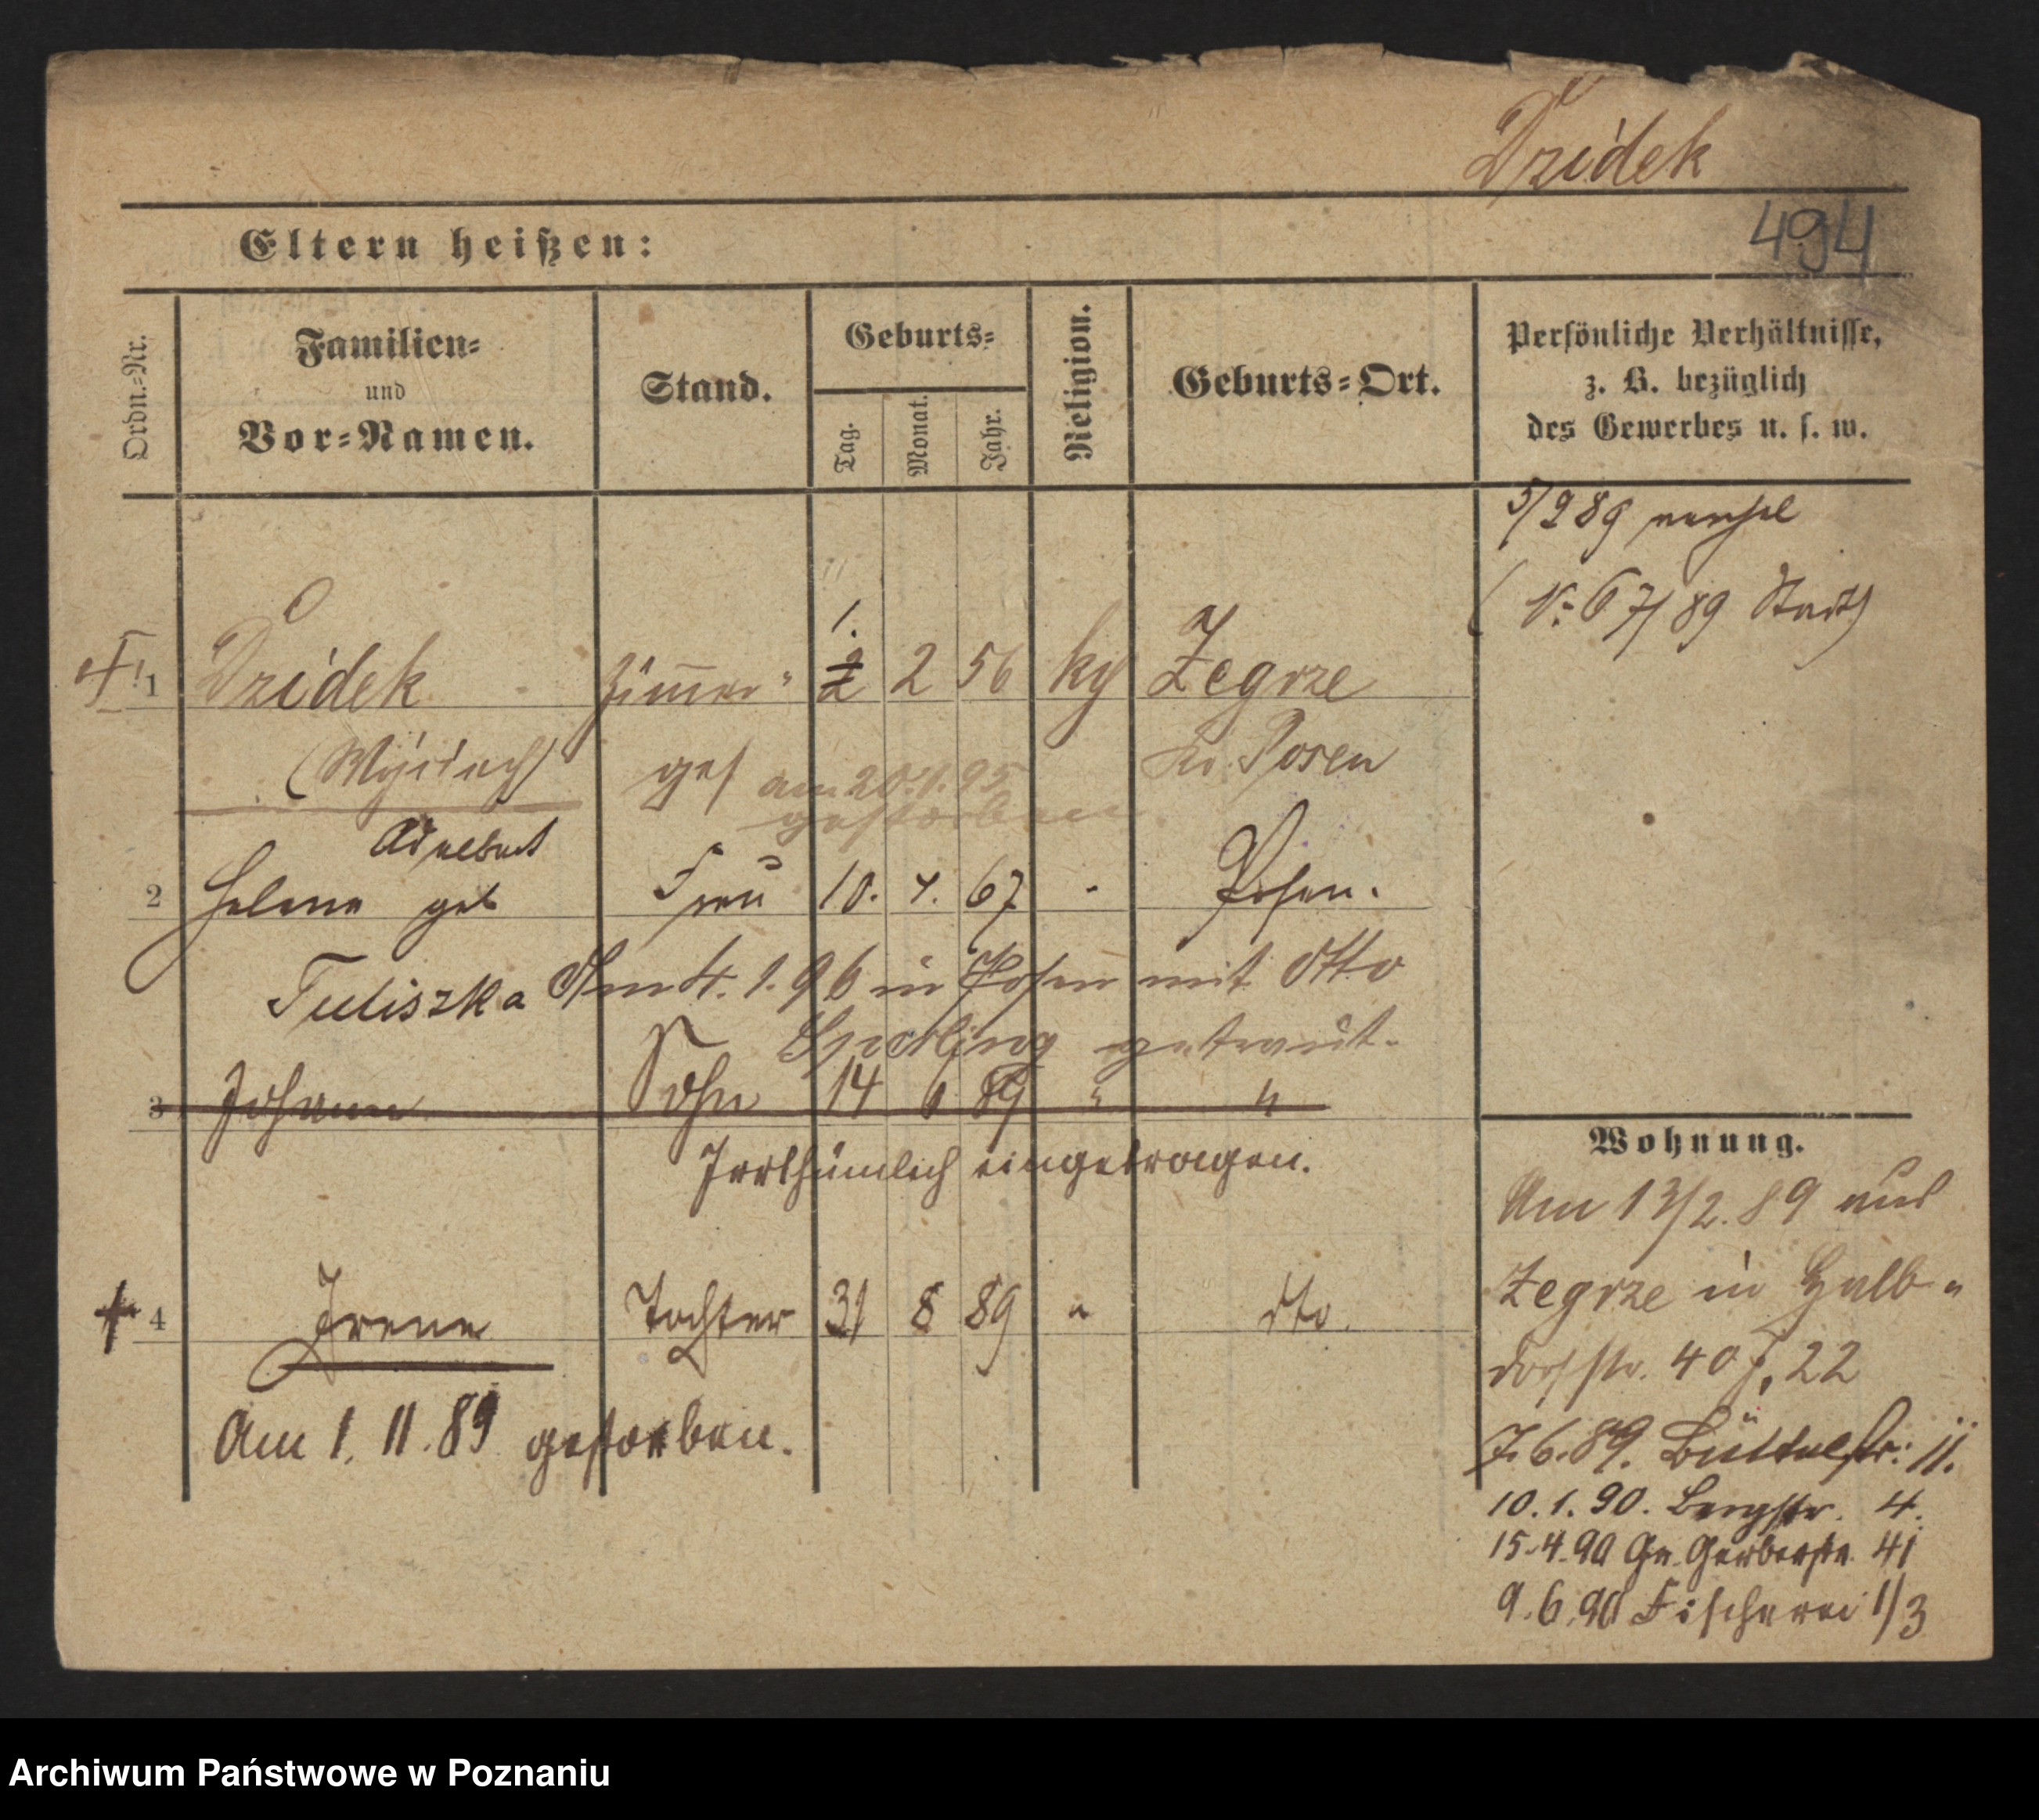 Dzidek
494
Eltern heißen:
Ordn.-Nr.
Familien-
und
Vor-Namen.
Stand.
Geburts-
Tag.
Monat.
Jahr.
Religion.
Geburts-Ort.
Persönliche Verhältnisse,
z. B. bezüglich
des Gewerbes u. s. w.
5/2 89
(N: 67/89 Stadt)
1.
1 Dzidek Zimmer- 2 2 56 kg Zegrze
ges Kr. Posen
am 20.1.95
gestorben
Adalbert
2 Helene geb Frau 10. 4. 67 - Posen.
Tuliszka Am 4. 1. 96 in Posen mit Otto
Sperling getraut.
3 Johann Sohn 14 6 89 " "
Irrthümlich eingetragen.
4 Irene Tochter 31 8 89 " dto.
Am 1. 11. 89 gestorben.
Wohnung.
Am 13/2. 89 aus
Zegrze in Halb-
dorfstr. 40 J, 22
7. 6. 89. Büttelstr: 11.
10. 1. 90. Bergstr. 4.
15.4.90 Gr. Gerberstr. 41
9. 6. 90 Fischerei 1/3
Archiwum Państwowe w Poznaniu